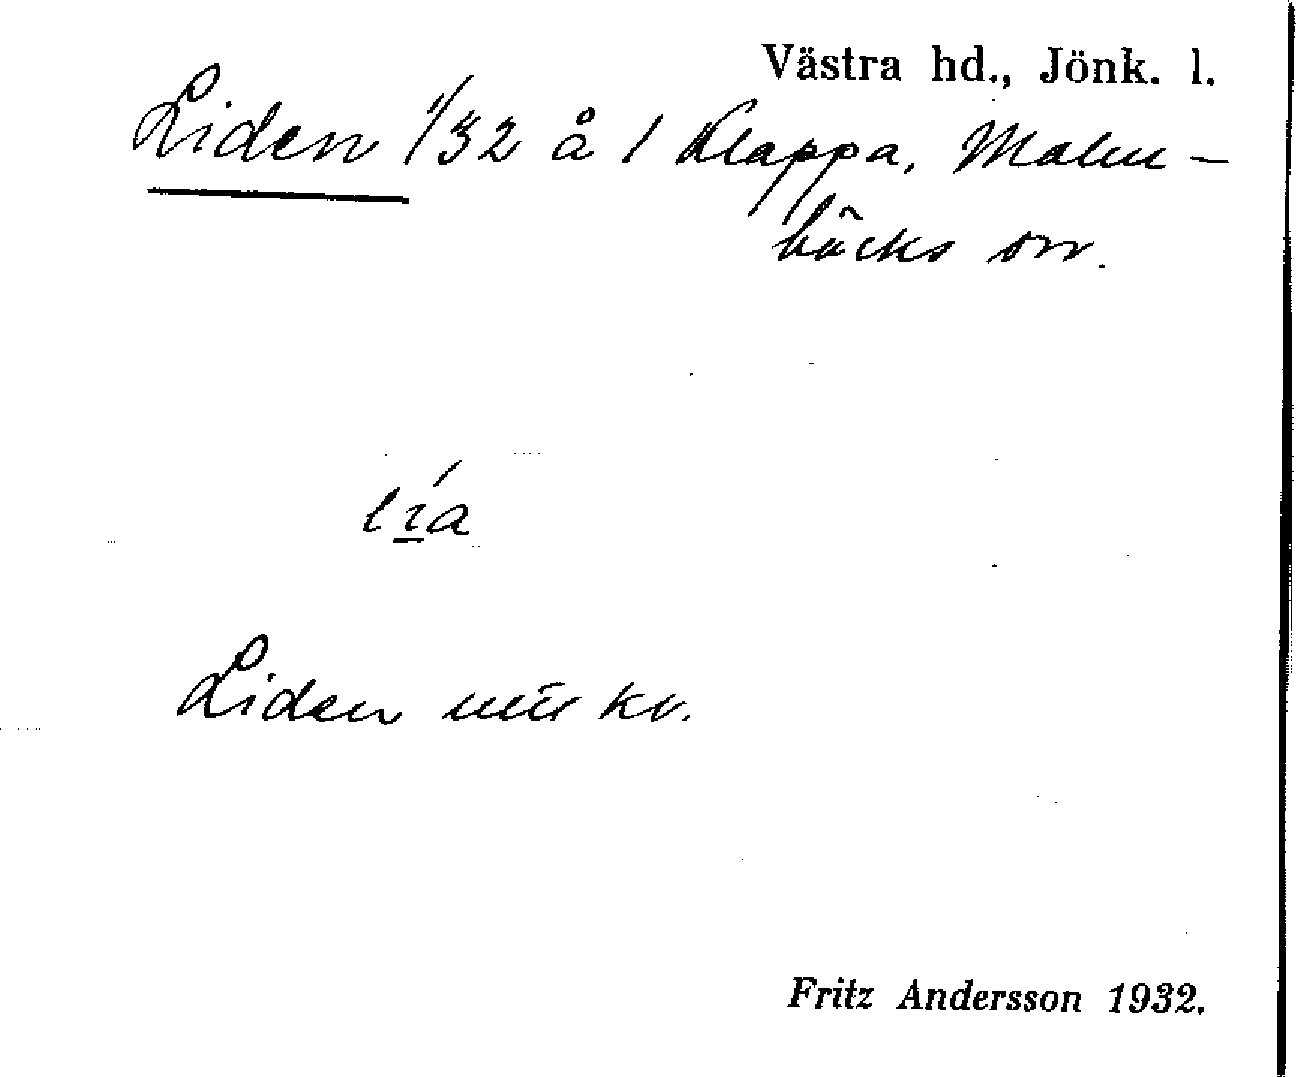 Västra hd., Jönk. l.
Liden 1/32 å 1 Klappa, Malm-
bäcks sn.
lía
Liden mtr kv.
Fritz Andersson 1932.